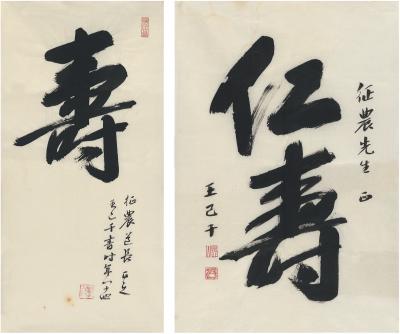 壽
征農道長正之
王己千書時年八十四
征農先生正
仁壽
王己千